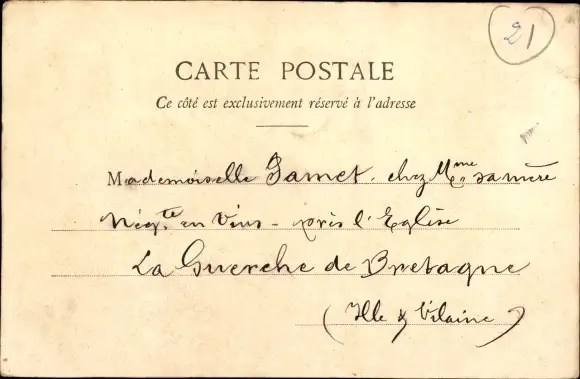 21
CARTE POSTALE
Ce côté est exclusivement réservé à l'adresse
Mademoiselle Jamet, chez Mme sa mère
Négte en Vins - près l'Eglise
La Guerche de Bretagne
(Ille & Vilaine)